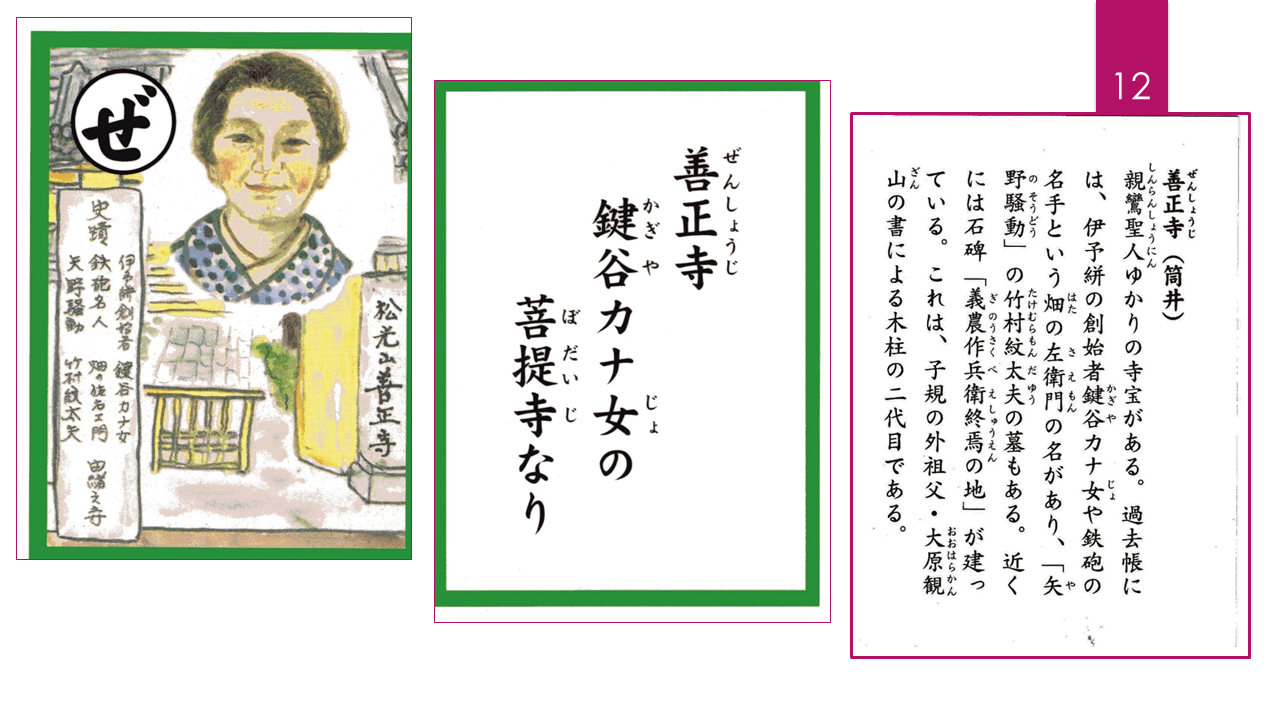 12
ぜ
史蹟
伊予絣創始者 鍵谷カナ女
鉄砲名人 畑の左右エ門
矢野騒動 竹村紋太夫
由緒之寺
松光山善正寺
善正寺
ぜんしょうじ
鍵谷カナ女の
かぎや じょ
菩提寺なり
ぼだいじ
善正寺(筒井)
ぜんしょうじ
親鸞聖人ゆかりの寺宝がある。過去帳に
しんらんしょうにん
は、伊予絣の創始者鍵谷カナ女や鉄砲の
かぎや じょ
名手という畑の左衛門の名があり、「矢
はた さえもん や
野騒動」の竹村紋太夫の墓もある。近く
のそうどう たけむらもんだゆう
には石碑「義農作兵衛終焉の地」が建っ
ぎのうさくべえしゅうえん
ている。これは、子規の外祖父・大原観
おおはらかん
山の書による木柱の二代目である。
ざん